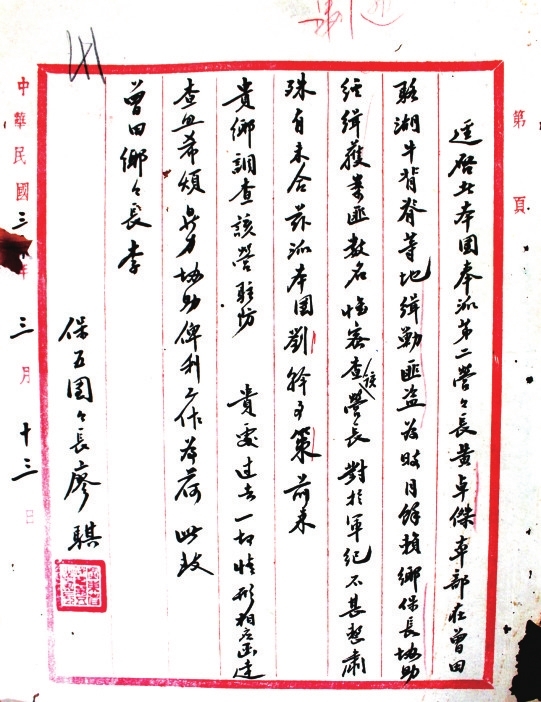 第 頁
逕啓者本團奉派第二營々長黃卓傑率部在曾田
駱湖牛背脊等地緝勦匪盜為時月餘賴鄉保長協助
經緝獲案匪數名惟密查該營長對於軍紀不甚整肅
殊有未合茲派本團劉幹事策前來
貴鄉調查該營駐防 貴處過去一切情形相應函達
查照希煩鼎力協助俾利工作為荷 此致
曾田鄉々長李
保五團々長廖騏
中華民國三 年三月十三日